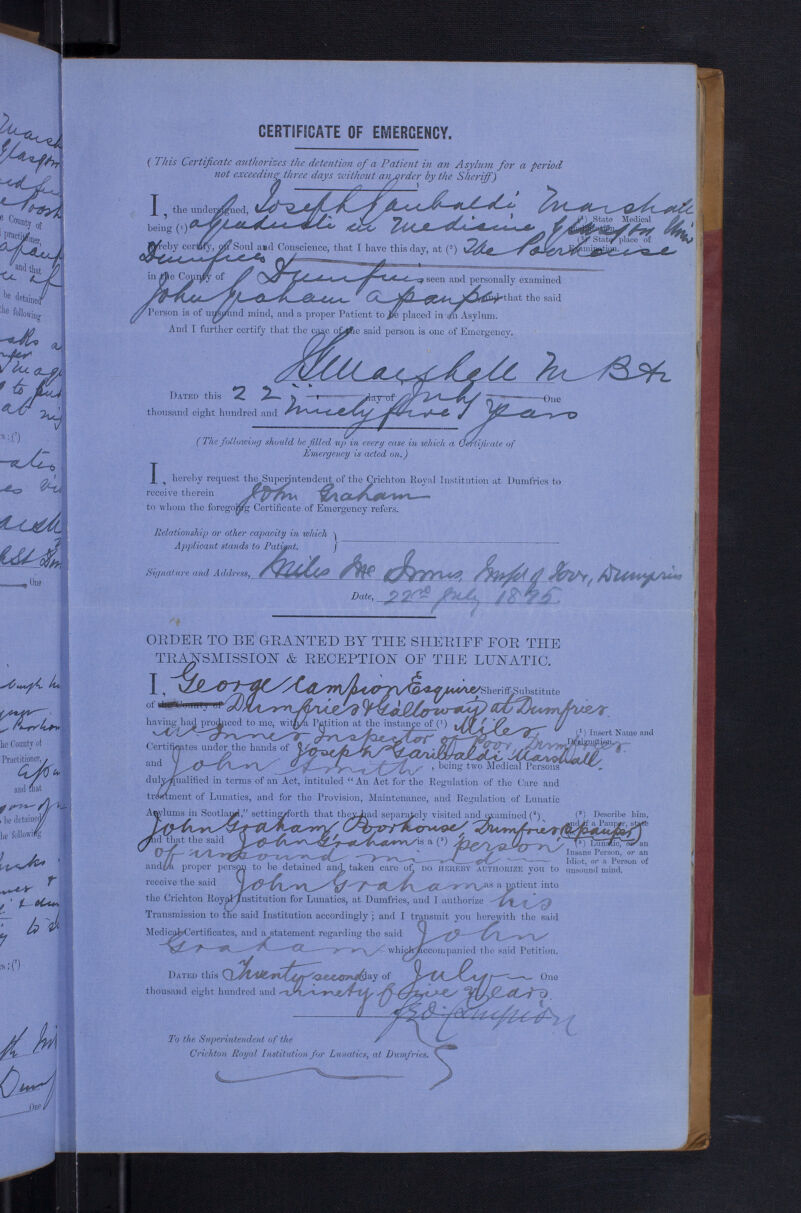 CERTIFICATE OF EMERGENCY.
(This Certificate authorizes the detention of a Patient in an Asylum for a period
not exceeding three days without an order by the Sheriff)
I, the undersigned, Joseph Garibaldi Marshall
being (¹) a graduate in Medicine Glasgow Univ
(¹) State Medical
Dumfries
hereby certify, on Soul and Conscience, that I have this day, at (²) The Poorhouse
(²) State place of
Examination.
in the County of Dumfries seen and personally examined
John Graham a pauper and that the said
Person is of unsound mind, and a proper Patient to be placed in an Asylum.
And I further certify that the case of the said person is one of Emergency.
JG Marshall M B &c
DATED this 22 day of July One
thousand eight hundred and ninety five years
(The following should be filled up in every case in which a Certificate of
Emergency is acted on.)
I, hereby request the Superintendent of the Crichton Royal Institution at Dumfries to
receive therein John Graham
to whom the foregoing Certificate of Emergency refers.
Relationship or other capacity in which
Applicant stands to Patient.
Signature and Address, Miles Mc Innes, Inspr of Poor, Dumfries
Date, 22nd July 1895
ORDER TO BE GRANTED BY THE SHERIFF FOR THE
TRANSMISSION & RECEPTION OF THE LUNATIC.
I, George Campion Esquire Sheriff Substitute
of the County of Dumfries & Galloway at Dumfries
having had produced to me, with a Petition at the instance of (¹) Miles
(¹) Insert Name and
Designation.
Mc Innes Inspector of Poor, Dumfries
Certificates under the hands of Joseph Garibaldi Marshall
and John Smith, being two Medical Persons
duly qualified in terms of an Act, intituled "An Act for the Regulation of the Care and
treatment of Lunatics, and for the Provision, Maintenance, and Regulation of Lunatic
Asylums in Scotland," setting forth that they had separately visited and examined (²)
(²) Describe him,
and if a Pauper, state
John Graham, Poorhouse, Dumfries (a pauper)
and that the said John Graham is a (³) person
(³) Lunatic, or an
Insane Person, or an
Idiot, or a Person of
unsound mind.
of unsound mind
and a proper person to be detained and taken care of, DO HEREBY AUTHORIZE you to
receive the said John Graham as a patient into
the Crichton Royal Institution for Lunatics, at Dumfries, and I authorize his
Transmission to the said Institution accordingly; and I transmit you herewith the said
Medical Certificates, and a statement regarding the said John
Graham which accompanied the said Petition.
DATED this Twenty second day of July One
thousand eight hundred and ninety five years
Geo. Campion
To the Superintendent of the
Crichton Royal Institution for Lunatics, at Dumfries.